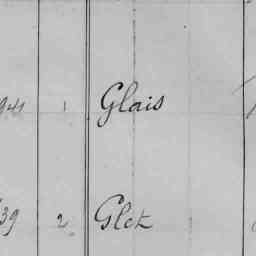 1 Glais
39 2 Glck